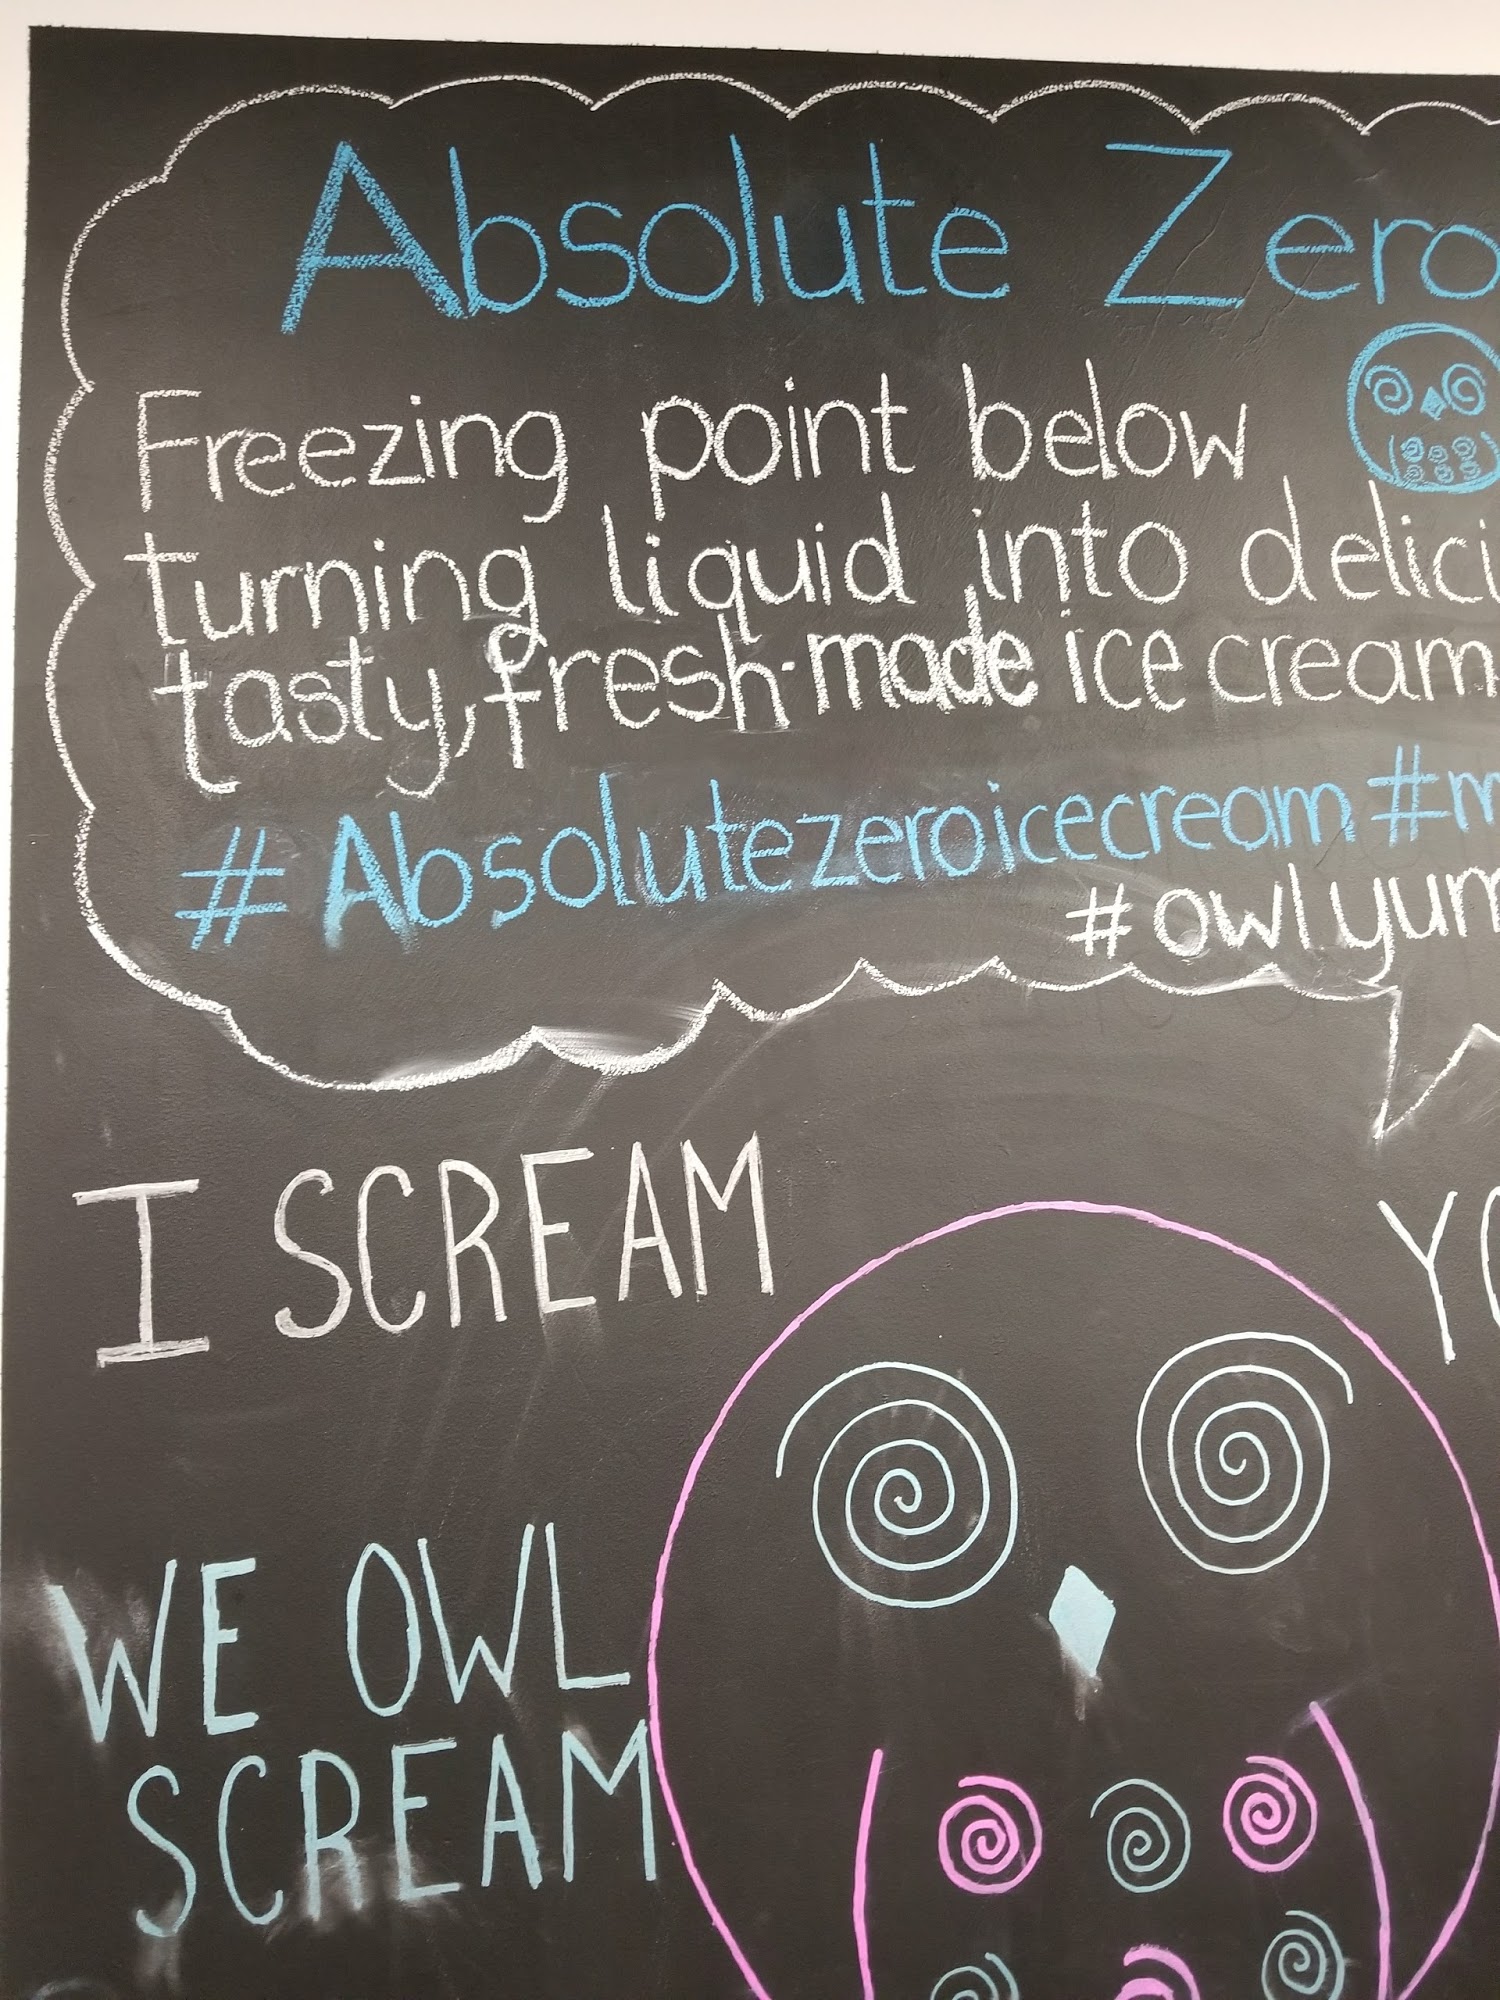 Absolute Zero
Freezing point below
turning liquid into delici
tasty, fresh-made ice cream
#Absolutezeroicecream #m
#owlyum
I SCREAM
YO
WE OWL
SCREAM